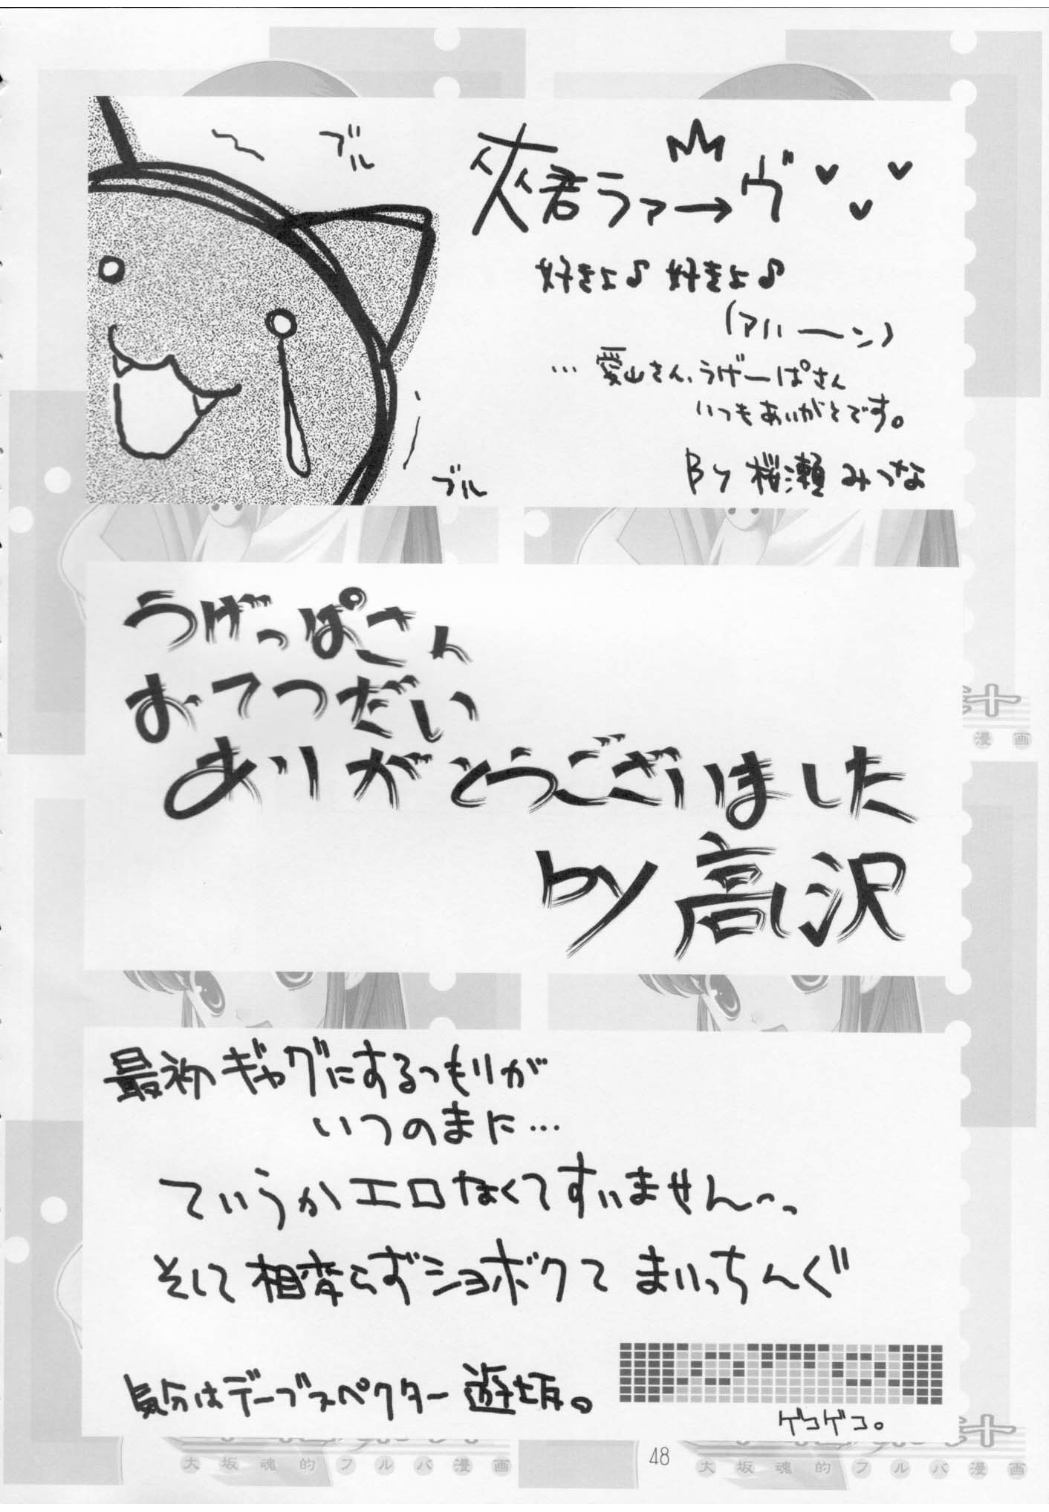 ブル
夾君ラァ→ヴ
好きよ♪ 好きよ♪
(アハーン)
… 愛山さん、うげーぱさん
いつもありがとです。
ブル
By 桜瀬 みつな
うげっぱさん
おてつだい
ありがとうございました
by 高沢
漫画
最初ギャグにするつもりが
いつのまに…
ていうかエロなくてすいません〜っ
そして相変らずショボクてまいっちんぐ
気分はデーブスペクター 遊坂。
ゲコゲコ。
48
大坂魂的フルバ漫画
大坂魂的フルバ漫画